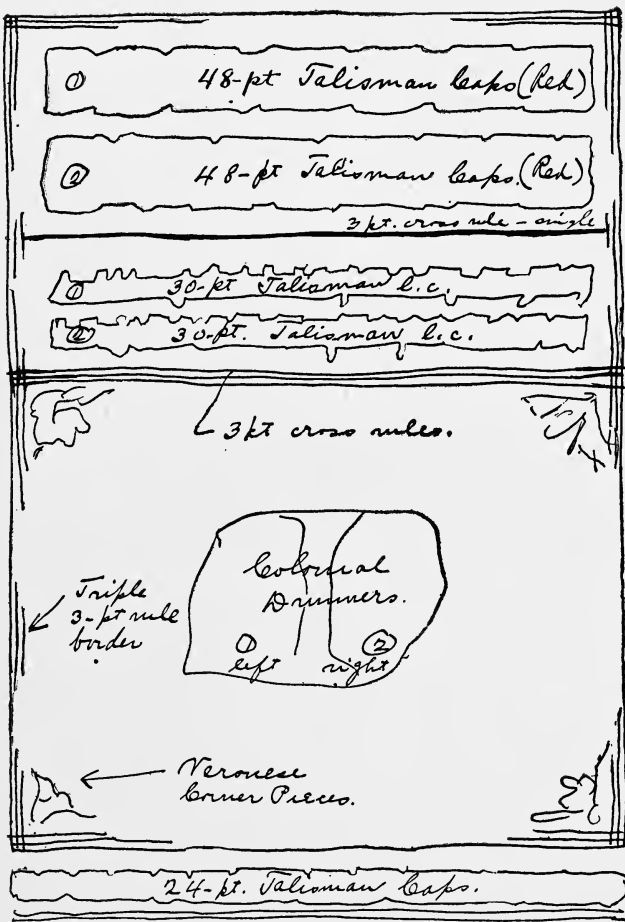 ① 48-pt Talisman Caps (Red)
② 48-pt Talisman Caps. (Red)
3 pt. cross rule - single
① 30-pt Talisman l.c.
② 30-pt. Talisman l.c.
3 pt cross rules.
Colonial
Drummers.
① ②
left right
Triple
3-pt rule
border
Veronese
Corner Pieces.
24-pt. Talisman Caps.